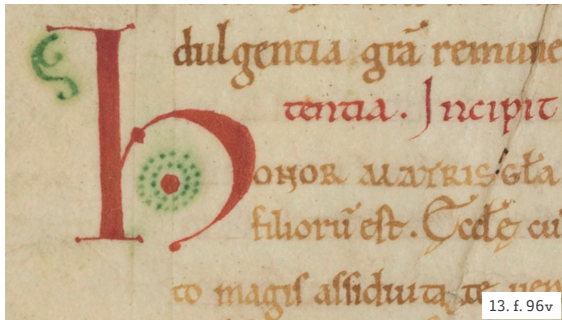 dulgentia. grã remune
tentia. Incipit
hONOR MATRIS GLA
filiorũ est. Eccłę cu
to magis assiduita te uen
13. f. 96v